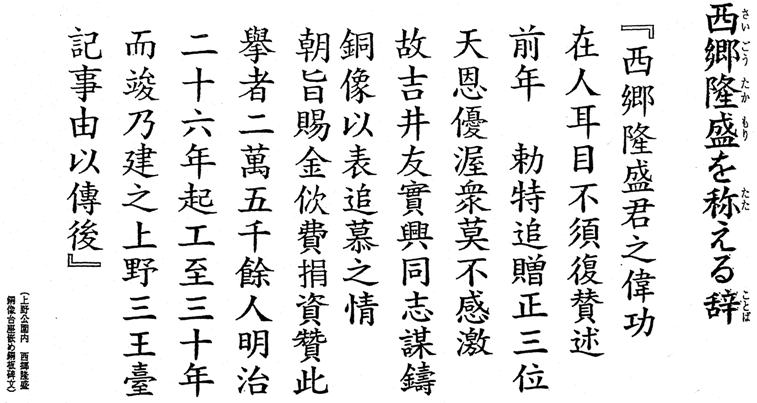 西郷隆盛を称える辞
さいごうたかもり たたことば
『西郷隆盛君之偉功
在人耳目不須復賛述
前年　勅特追贈正三位
天恩優渥衆莫不感激
故吉井友實興同志謀鑄
銅像以表追慕之情
朝旨賜金佽費捐資贊此
擧者二萬五千餘人明治
二十六年起工至三十年
而竣乃建之上野三王臺
記事由以傳後』
（上野公園内　西郷隆盛
銅像台座嵌め銅板碑文）